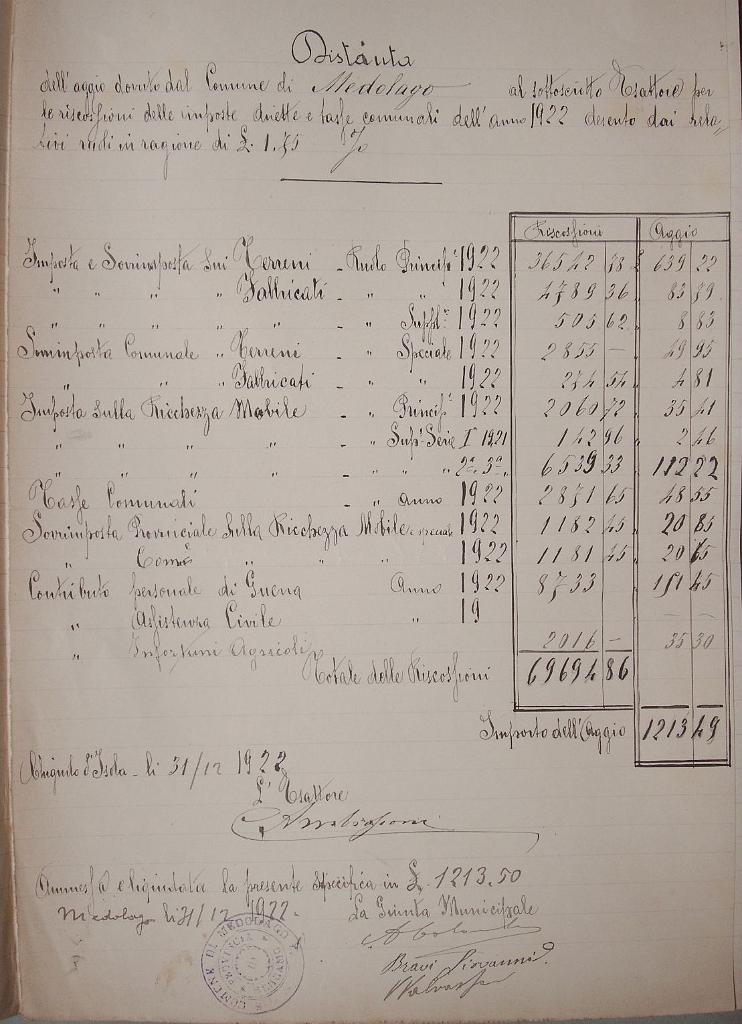 Distinta
dell'aggio dovuto dal Comune di Medolago al sottoscritto Esattore per
le riscossioni delle imposte dirette e tasse comunali dell'anno 1922 desunto dai rela-
tivi ruoli in ragione di £. 1.75 %
Riscossioni Aggio
Imposta e Sovrimposta sui Terreni - Ruolo Princip.e 1922 36542 78 639 22
" " " " Fabbricati - " " 1922 4789 36 83 79
" " " " " - " Suppl.vo 1922 505 62 8 83
Sovrimposta Comunale " Terreni - " Speciale 1922 2855 — 49 95
" " " Fabbricati - " " 1922 274 54 4 81
Imposta sulla Ricchezza Mobile - " Princip.e 1922 2060 72 35 41
" " " " - " Sup. Serie Iª 1921 142 96 2 46
" " " " - " " 2ª 3ª " 6539 33 112 22
Tasse Comunali - " Anno 1922 2871 65 48 55
Sovrimposta Provinciale sulla Ricchezza Mobile e speciale 1922 1182 45 20 65
" Com.le " " " 1922 1181 45 20 65
Contributo personale di Guerra Anno 1922 8733 151 45
" Assistenza Civile " 19 — —
" Infortuni Agricoli 2016 — 35 30
Totale delle Riscossioni 69694 86
Importo dell'Aggio 1213 49
Chignolo d'Isola - li 31/12 1922
L'Esattore
Ammessa e liquidata la presente specifica in £. 1213.50
Medolago li 31/12 1922.
La Giunta Municipale
Bravi Giovanni
COMUNE DI MEDOLAGO
PROVINCIA DI BERGAMO